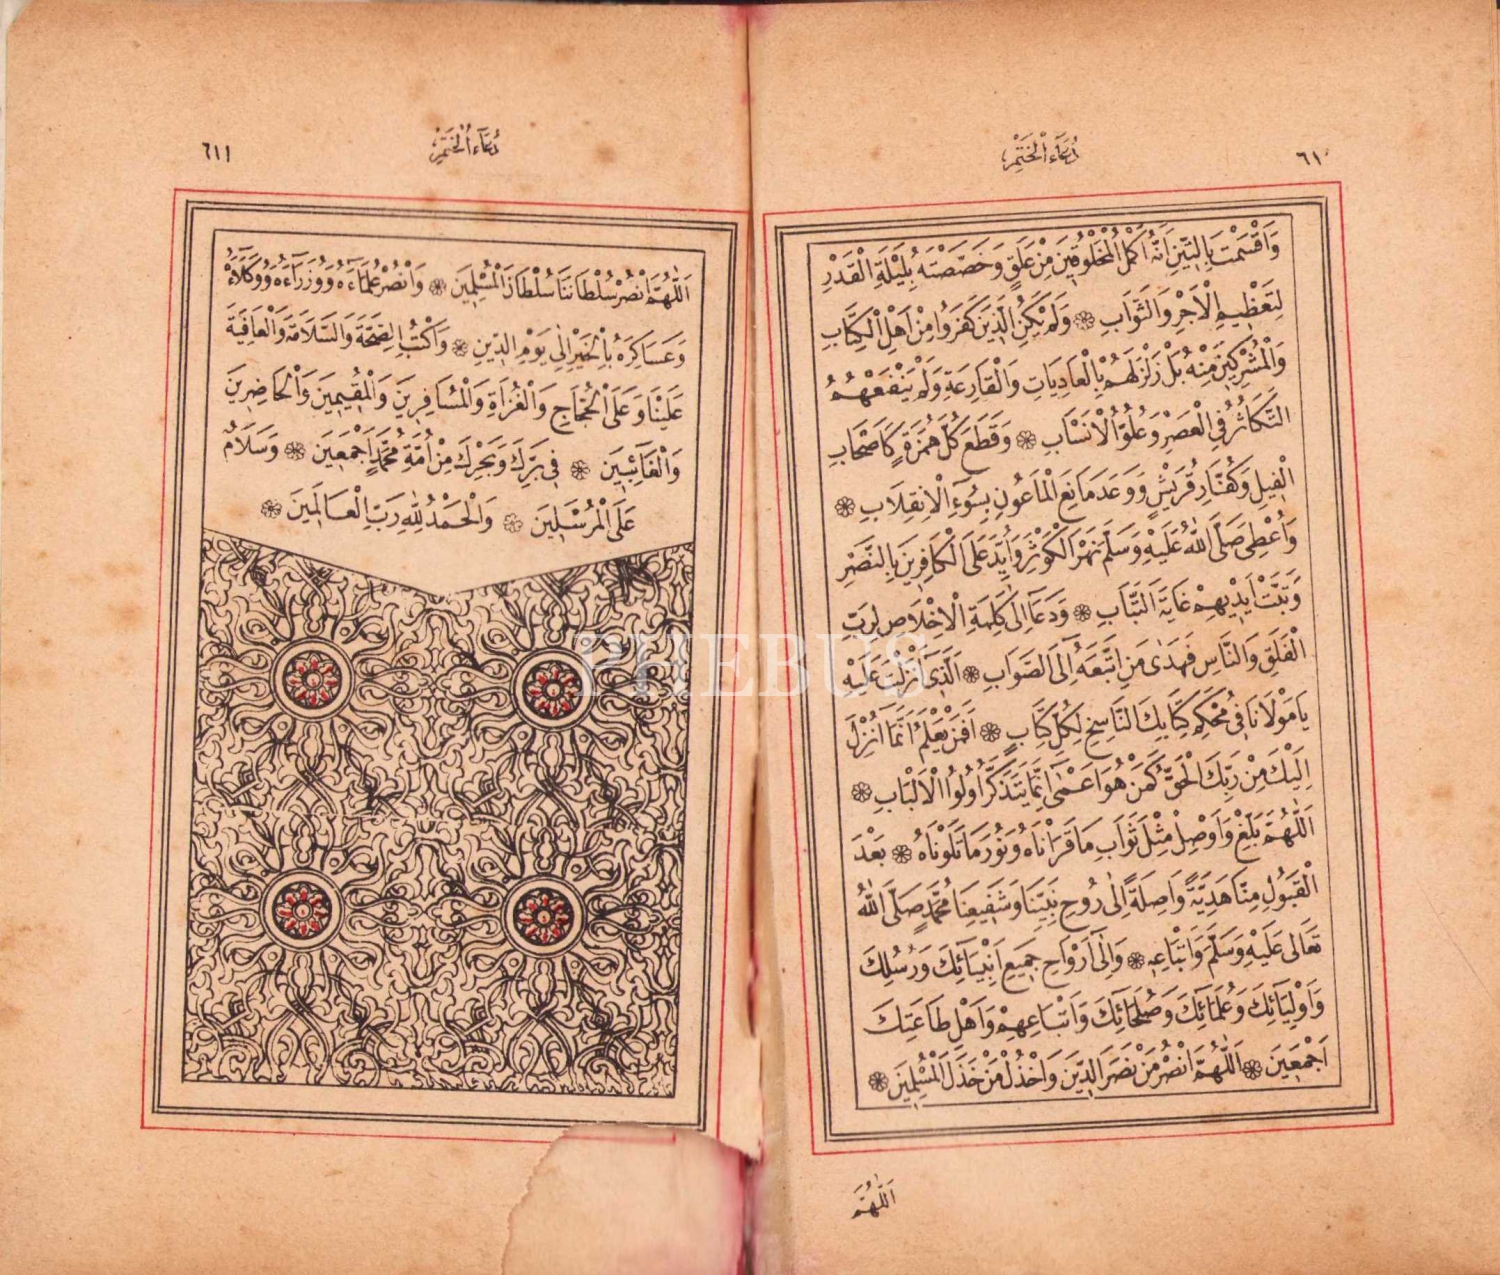 ٦١٠
دُعَاءُ الْخَتْمِ
وَاَقْسَمْتَ بِالتّٖينِ اَنَّهُ اَكْمَلُ الْمَخْلُوقٖينَ مِنْ عَلَقٍ وَخَصَّصْتَهُ بِلَيْلَةِ الْقَدْرِ
لِتَعْظٖيمِ الْاَجْرِ وَالثَّوَابِ ۞ وَلَمْ يَكُنِ الَّذٖينَ كَفَرُوا مِنْ اَهْلِ الْكِتَابِ
وَالْمُشْرِكٖينَ مِنْهُ بَلْ زَلْزَلَهُمْ بِالْعَادِيَاتِ وَالْقَارِعَةِ وَلَمْ يَنْفَعْهُمُ
التَّكَاثُرُ فِى الْعَصْرِ وَعُلُوُّ الْاَنْسَابِ ۞ وَقَطَعَ كُلَّ هُمَزَةٍ كَاَصْحَابِ
الْفٖيلِ وَكُفَّارِ قُرَيْشٍ وَوَعَدَ مَانِعَ الْمَاعُونِ بِسُوءِ الْاِنْقِلَابِ ۞
وَاُعْطِىَ صَلَّى اللّٰهُ عَلَيْهِ وَسَلَّمَ نَهْرَ الْكَوْثَرِ وَاُيِّدَ عَلَى الْكَافِرٖينَ بِالنَّصْرِ
وَتَبَّتْ اَيْدٖيهِمْ غَايَةَ التَّبَابِ ۞ وَدَعَا اِلٰى كَلِمَةِ الْاِخْلَاصِ لِرَبِّ
الْفَلَقِ وَالنَّاسِ فَهَدٰى مَنِ اتَّبَعَهُ اِلَى الصَّوَابِ ۞ اَلَّذٖى اَنْزَلْتَ عَلَيْهِ
يَا مَوْلَانَا فٖى مُحْكَمِ كِتَابِكَ النَّاسِخِ لِكُلِّ كِتَابٍ ۞ اَفَمَنْ يَعْلَمُ اَنَّمَا اُنْزِلَ
اِلَيْكَ مِنْ رَبِّكَ الْحَقُّ كَمَنْ هُوَ اَعْمٰى اِنَّمَا يَتَذَكَّرُ اُولُوا الْاَلْبَابِ ۞
اَللّٰهُمَّ بَلِّغْ وَاَوْصِلْ مِثْلَ ثَوَابِ مَا قَرَاْنَاهُ وَنُورَ مَا تَلَوْنَاهُ ۞ بَعْدَ
الْقَبُولِ مِنَّا هَدِيَّةً وَاصِلَةً اِلٰى رُوحِ نَبِيِّنَا وَشَفٖيعِنَا مُحَمَّدٍ صَلَّى اللّٰهُ
تَعَالٰى عَلَيْهِ وَسَلَّمَ وَاَتْبَاعِهٖ ۞ وَاِلٰى اَرْوَاحِ جَمٖيعِ اَنْبِيَائِكَ وَرُسُلِكَ
وَاَوْلِيَائِكَ وَعُلَمَائِكَ وَصُلَحَائِكَ وَاَتْبَاعِهِمْ وَاَهْلِ طَاعَتِكَ
اَجْمَعٖينَ ۞ اَللّٰهُمَّ انْصُرْ مَنْ نَصَرَ الدّٖينَ وَاخْذُلْ مَنْ خَذَلَ الْمُسْلِمٖينَ ۞
اَللّٰهُمَّ
٦١١
دُعَاءُ الْخَتْمِ
اَللّٰهُمَّ انْصُرْ سُلْطَانَنَا سُلْطَانَ الْمُسْلِمٖينَ ۞ وَانْصُرْ عُلَمَاءَهُ وَوُزَرَاءَهُ وَوُكَلَاءَهُ
وَعَسَاكِرَهُ بِالْخَيْرِ اِلٰى يَوْمِ الدّٖينِ ۞ وَاكْتُبِ الصِّحَّةَ وَالسَّلَامَةَ وَالْعَافِيَةَ
عَلَيْنَا وَعَلَى الْحُجَّاجِ وَالْغُزَاةِ وَالْمُسَافِرٖينَ وَالْمُقٖيمٖينَ وَالْحَاضِرٖينَ
وَالْغَائِبٖينَ ۞ فٖى بَرِّكَ وَبَحْرِكَ مِنْ اُمَّةِ مُحَمَّدٍ اَجْمَعٖينَ ۞ وَسَلَامٌ
عَلَى الْمُرْسَلٖينَ ۞ وَالْحَمْدُ لِلّٰهِ رَبِّ الْعَالَمٖينَ ۞
PHEBUS